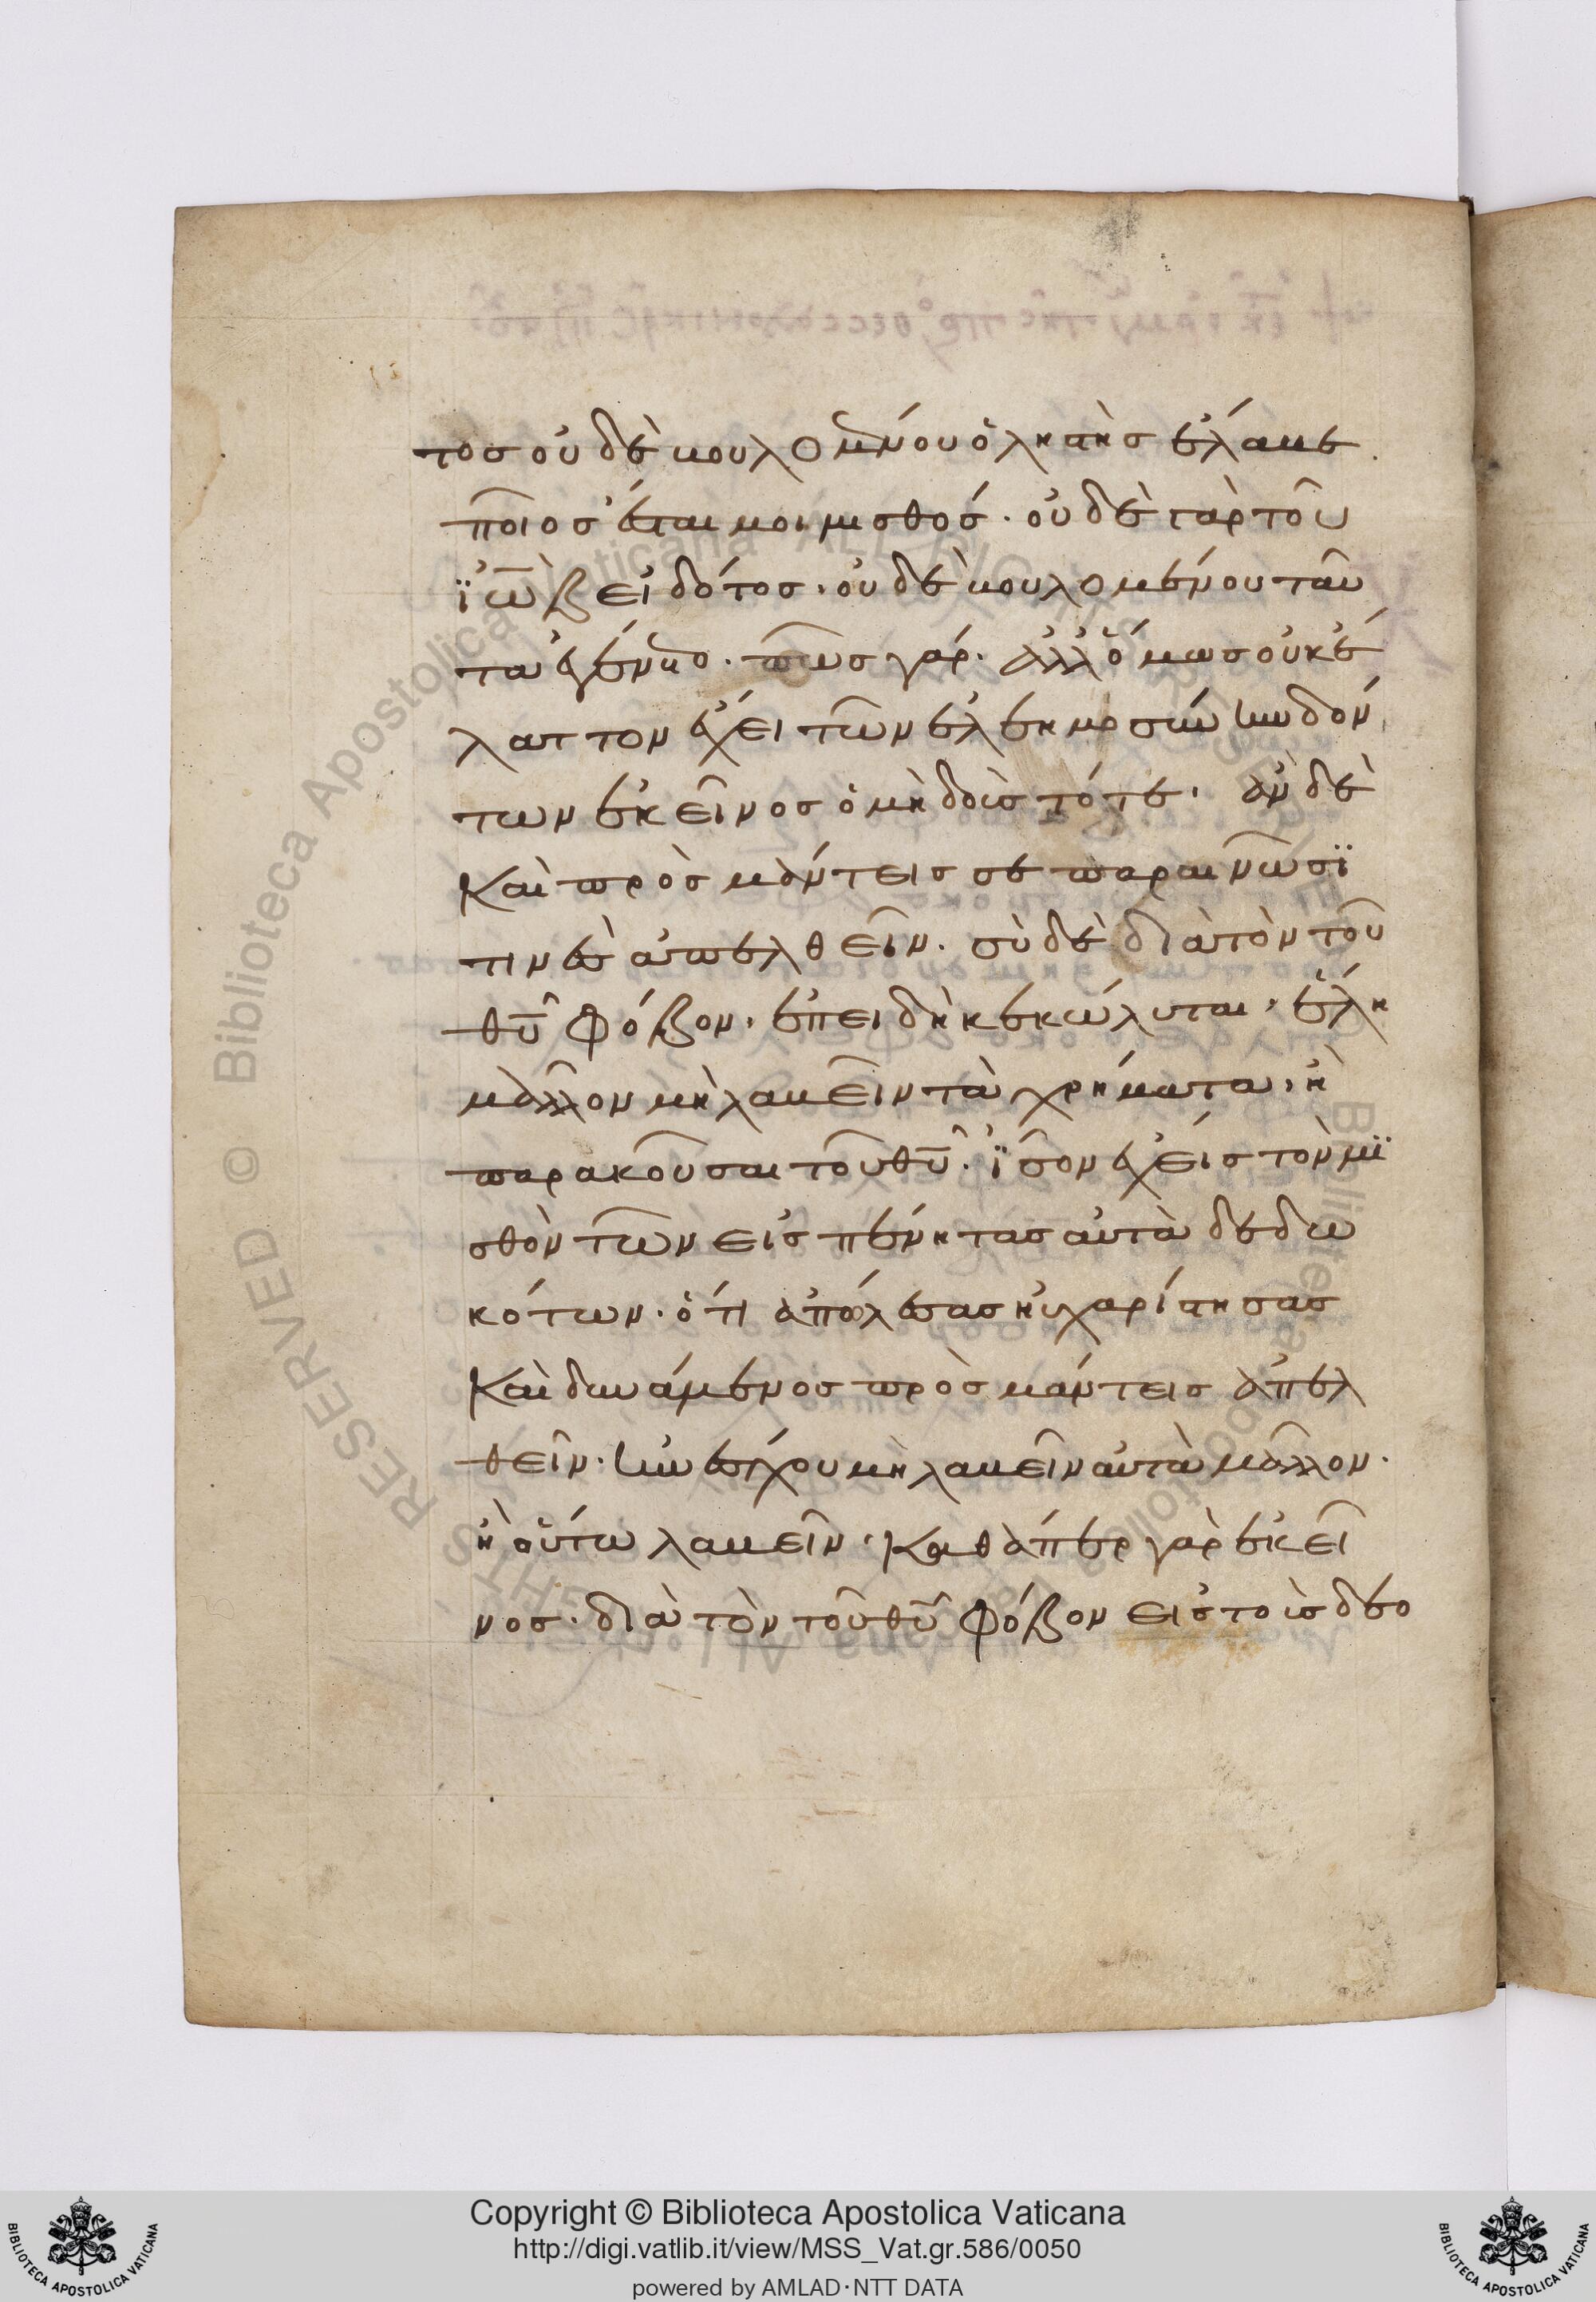 τος οὐδὲ βουλομένου ὁ ληστὴς ἔλαβε.
ποῖος ἔσται μοι μισθός· οὐδὲ γὰρ τοῦ
ϊὼβ εἰδότος· οὐδὲ βουλομένου ταῦ
τα γένητο· πῶς γάρ· ἀλλ' ὅμως οὐκ ἔ
λαττον ἕξει τῶν ἐλεημοσύνην δόν
των ἐκεῖνος ὁ μὴ δοὺς τότε· ἂν δὲ
καὶ πρὸς μάντεις σε παραινῶσϊ
τινὲς ἀπελθεῖν· σὺ δὲ διὰ τὸν τοῦ
θῦ φόβον· ἐπειδὴ κεκώλυται· ἕλῃ
μᾶλλον μὴ λαβεῖν τὰ χρήματα· ἢ
παρακοῦσαι τοῦ θῦ· ἴσον ἔχεις τὸν μϊ
σθὸν τῶν εἰς πένητας αὐτὰ δεδω
κότων· ὅτι ἀπολέσας ηὐχαρίστησας
καὶ δυνάμενος πρὸς μάντεις ἀπελ
θεῖν· ἠνέσχου μὴ λαβεῖν αὐτὰ μᾶλλον·
ἢ οὕτω λαβεῖν· καθάπερ γὰρ ἐκεῖ
νος· διὰ τὸν τοῦ θῦ φόβον εἰς τοὺς δεο
Copyright © Biblioteca Apostolica Vaticana
http://digi.vatlib.it/view/MSS_Vat.gr.586/0050
powered by AMLAD·NTT DATA
BIBLIOTECA APOSTOLICA VATICANA
BIBLIOTECA APOSTOLICA VATICANA